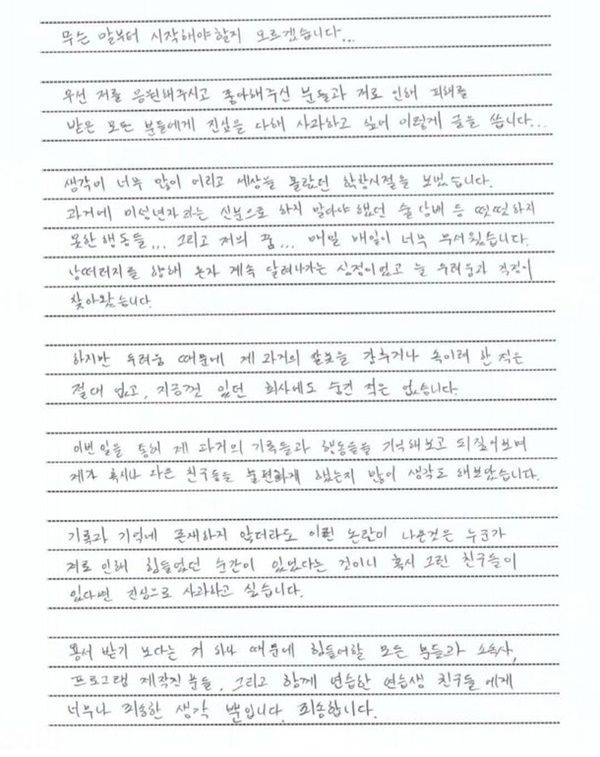 무슨 말부터 시작해야할지 모르겠습니다...
우선 저를 응원해주시고 좋아해주신 분들과 저로 인해 피해를
받은 모든 분들에게 진심을 다해 사과하고 싶어 이렇게 글을 씁니다...
생각이 너무 많이 어리고 세상을 몰랐던 학창시절을 보냈습니다.
과거에 미성년자라는 신분으로 하지 말아야 했던 술 담배 등 떳떳하지
못한 행동들... 그리고 저의 꿈... 매일 매일이 너무 무서웠습니다.
낭떠러지를 향해 혼자 계속 달려나가는 심정이었고 늘 두려움과 걱정이
찾아왔습니다.
하지만 두려움 때문에 제 과거의 잘못을 감추거나 속이려 한 적은
절대 없고, 지금껏 있던 회사에도 숨긴 적은 없습니다.
이번일을 통해 제 과거의 기록들과 행동들을 기억해보고 되짚어보며
제가 혹시나 다른 친구들을 불편하게 했는지 많이 생각도 해보았습니다.
기록과 기억에 존재하지 않더라도 이런 논란이 나온것은 누군가
저로 인해 힘들었던 순간이 있었다는 것이니 혹시 그런 친구들이
있다면 진심으로 사과하고 싶습니다.
용서 받기 보다는 저 하나 때문에 힘들어할 모든 분들과 소속사,
프로그램 제작진분들, 그리고 함께 연습한 연습생 친구들 에게
너무나 죄송한 생각 뿐입니다. 죄송합니다.